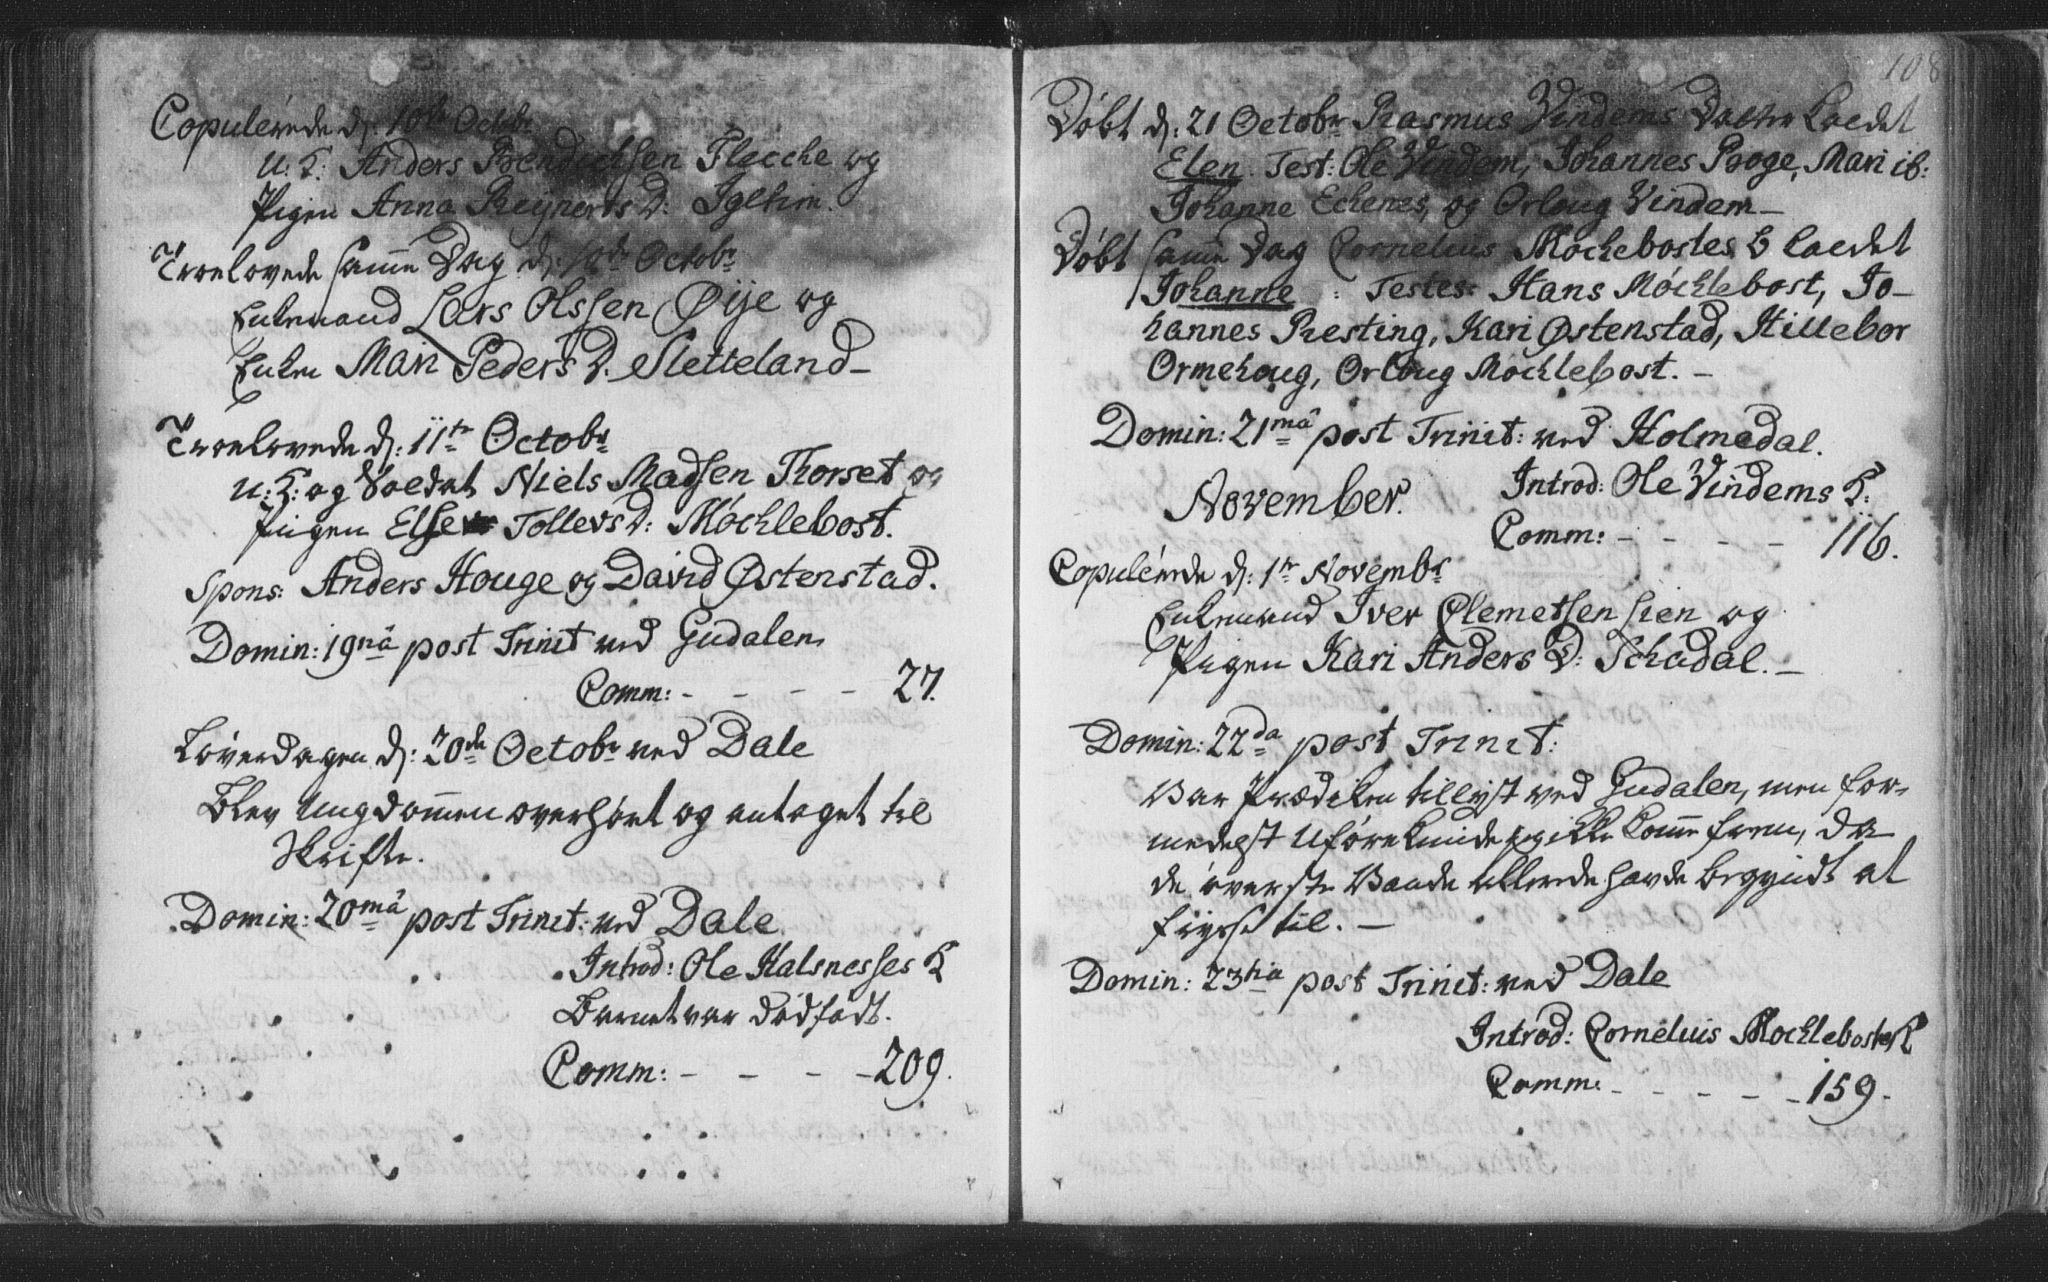 Copulerede d: 10de Octobr
u: K: Anders Bendichsen Flecche og
Pigen Anna Reÿners D: Igltim.
Troelovede samme Dag d: 10de Octobr
Enkemand Lars Olssen Øÿe og
Enken Mari Peders D. Sletteland –
Troelovede d: 11te Octobr
u: K: og Soldat Niels Madsen Thorset og
Pigen Else Tollevs D: Mochlebost.
Spons: Anders Houge og David Østenstad.
Domin: 19nâ post Trinit ved Gudalen
Comm: - - - - 27.
Løverdagen d: 20de Octobr ved Dale
Blev Ungdommen overhørt og antaget til
Skrifte.
Domin: 20mâ post Trinit: ved Dale
Introd: Ole Kalsnesses K
Barnet var dødfødt.
Comm: - - - - 209.
108
Døbt d: 21 Octobr Rasmus Vindems Datter kaldet
Elen. Test: Ole Vindem, Johannes Boge, Mari ib:
Johanne Echenes, og Orloug Vindem –
Døbt samme Dag Cornelius Mochebostes b kaldet
Johanne : Testes: Hans Mochlebost, Jo-
hannes Resting, Kari Østenstad, Hillebor
Ormehoug, Orloug Mochlebost. –
Domin: 21mâ post Trinit: ved Holmedal.
Introd: Ole Vindems K:
November.
Comm: - - - - 116.
Copulerede d: 1te Novembr
Enkemand Iver Clemetsen Lien og
Pigen Kari Anders D: Schadal. –
Domin: 22da post Trinit:
Var Prædiken tillyst ved Gudalen, men for-
medelst Uføre kunde jeg ikke komme frem, da
de øverste Vande allerede havde begyndt at
fryse til. –
Domin: 23tiâ post Trinit: ved Dale
Introd: Cornelius Mochlebostes K
Comm: - - - - - 159.